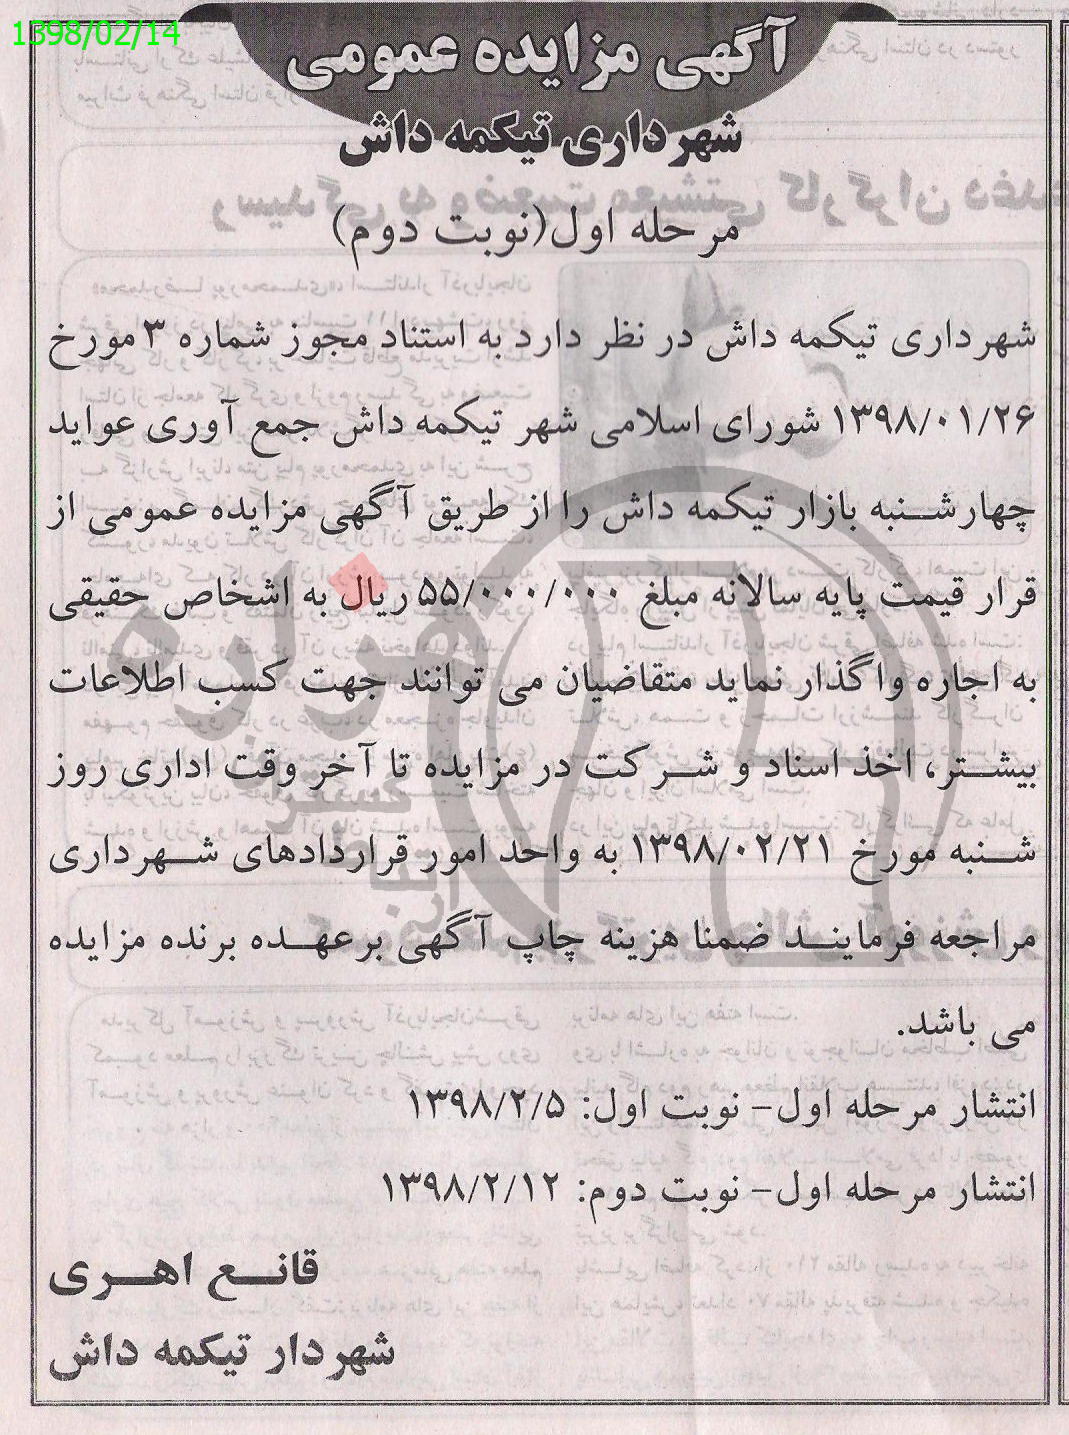 1398/02/14
آگهی مزایده عمومی
شهرداری تیکمه داش
مرحله اول(نوبت دوم)
شهرداری تیکمه داش در نظر دارد به استناد مجوز شماره ۳ مورخ
۱۳۹۸/۰۱/۲۶ شورای اسلامی شهر تیکمه داش جمع آوری عواید
چهارشنبه بازار تیکمه داش را از طریق آگهی مزایده عمومی از
قرار قیمت پایه سالانه مبلغ ۵۵/۰۰۰/۰۰۰ ریال به اشخاص حقیقی
به اجاره واگذار نماید متقاضیان می توانند جهت کسب اطلاعات
بیشتر، اخذ اسناد و شرکت در مزایده تا آخر وقت اداری روز
شنبه مورخ ۱۳۹۸/۰۲/۲۱ به واحد امور قراردادهای شهرداری
مراجعه فرمایند ضمنا هزینه چاپ آگهی برعهده برنده مزایده
می باشد.
انتشار مرحله اول- نوبت اول: ۱۳۹۸/۲/۵
انتشار مرحله اول- نوبت دوم: ۱۳۹۸/۲/۱۲
قانع اهری
شهردار تیکمه داش